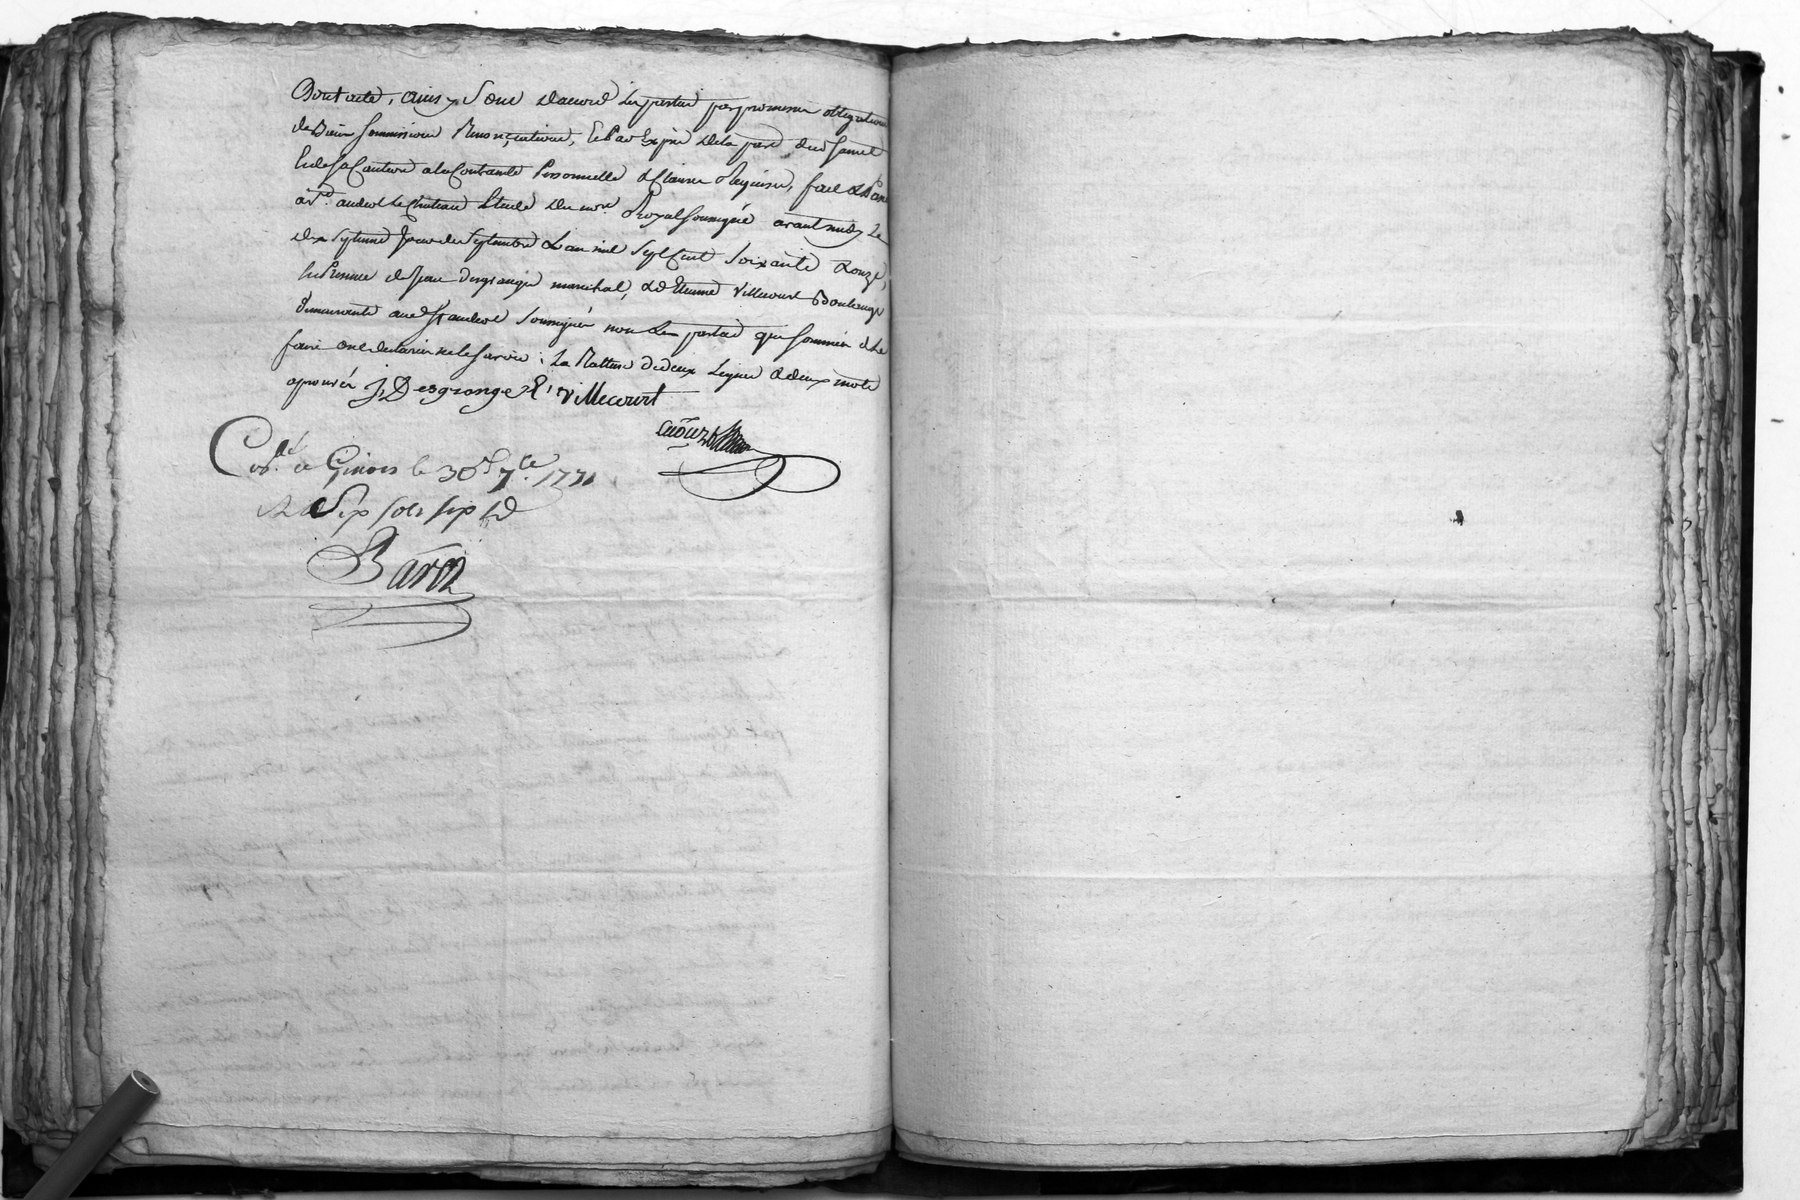 Dont acte, ainsy Sont daccord les parties par promesse obligations
de Biens Soumissions Renonçiations, Et Par Exprès de la part dud Jamet
Et de Sa Caution a la Contrainte Personnelle & Clause Requise, fait & Passé
a St andeol Le Chateau Etude du nore Royal Soussigné avant midy Le
dix Septieme Jour de Septembre L'an mil Sept Cent Soixante & onze,
En Presence de Jean Desgranges marechal, & d'Etienne Villecourt Boulanger
demeurants aud St andeol Soussignés non Les parties qui Sommées de Le
faire ont declaré ne le Savoir; La Rature de deux Lignes & deux mots
aprouvés J, Desgrange E, Villecourt
Con.lé a Givors le 30e 7bre 1771
R. Six sols six d
Baron